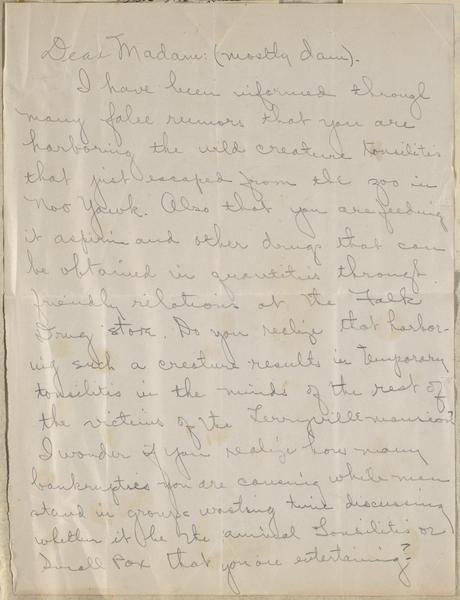 Dear Madam: (mostly dam).
I have been informed through
many false rumors that you are
harboring the wild creature tonsilitis
that just escaped from the zoo in
Noo Yawk. Also that you are feeding
it aspirin and other drugs that can
be obtained in quantities through
friendly relations at the Falk
Drug store. Do you realize that harbor-
ing such a creature results in temporary
tonsilitis in the minds of the rest of
the victims of the Terryville mansion?
I wonder if you realize how many
bankruptcies you are causing while men
stand in groups wasting time discussing
whether it be the animal Tonsilitis or
Small Pox that you are entertaining?